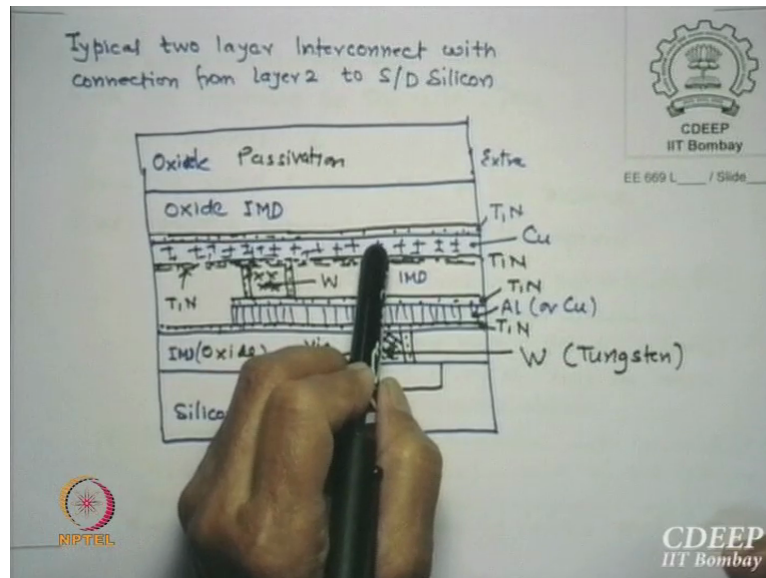 Typical two layer Interconnect with
connection from layer 2 to S/D Silicon
CDEEP
IIT Bombay
EE 669 L____ / Slide____
Oxide Passivation
Extra
Oxide IMD
TiN
Cu
TiN
W
IMD
TiN
TiN
Al (or Cu)
TiN
IMD (Oxide)
Via
W (Tungsten)
Silico
NPTEL
CDEEP
IIT Bombay